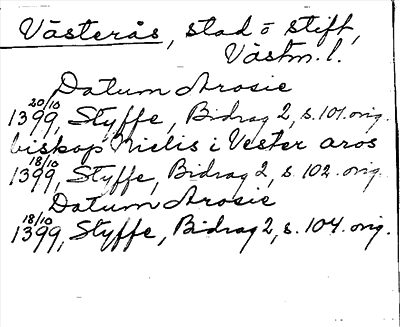 Västerås, stad o stift,
Västm. l.
Datum Arosie
20/10
1399, Styffe, Bidrag 2, s. 101. orig.
biskop Nielis i Vester aros
18/10
1399, Styffe, Bidrag 2, s. 102. orig.
Datum Arosie
18/10
1399, Styffe, Bidrag 2, s. 104. orig.